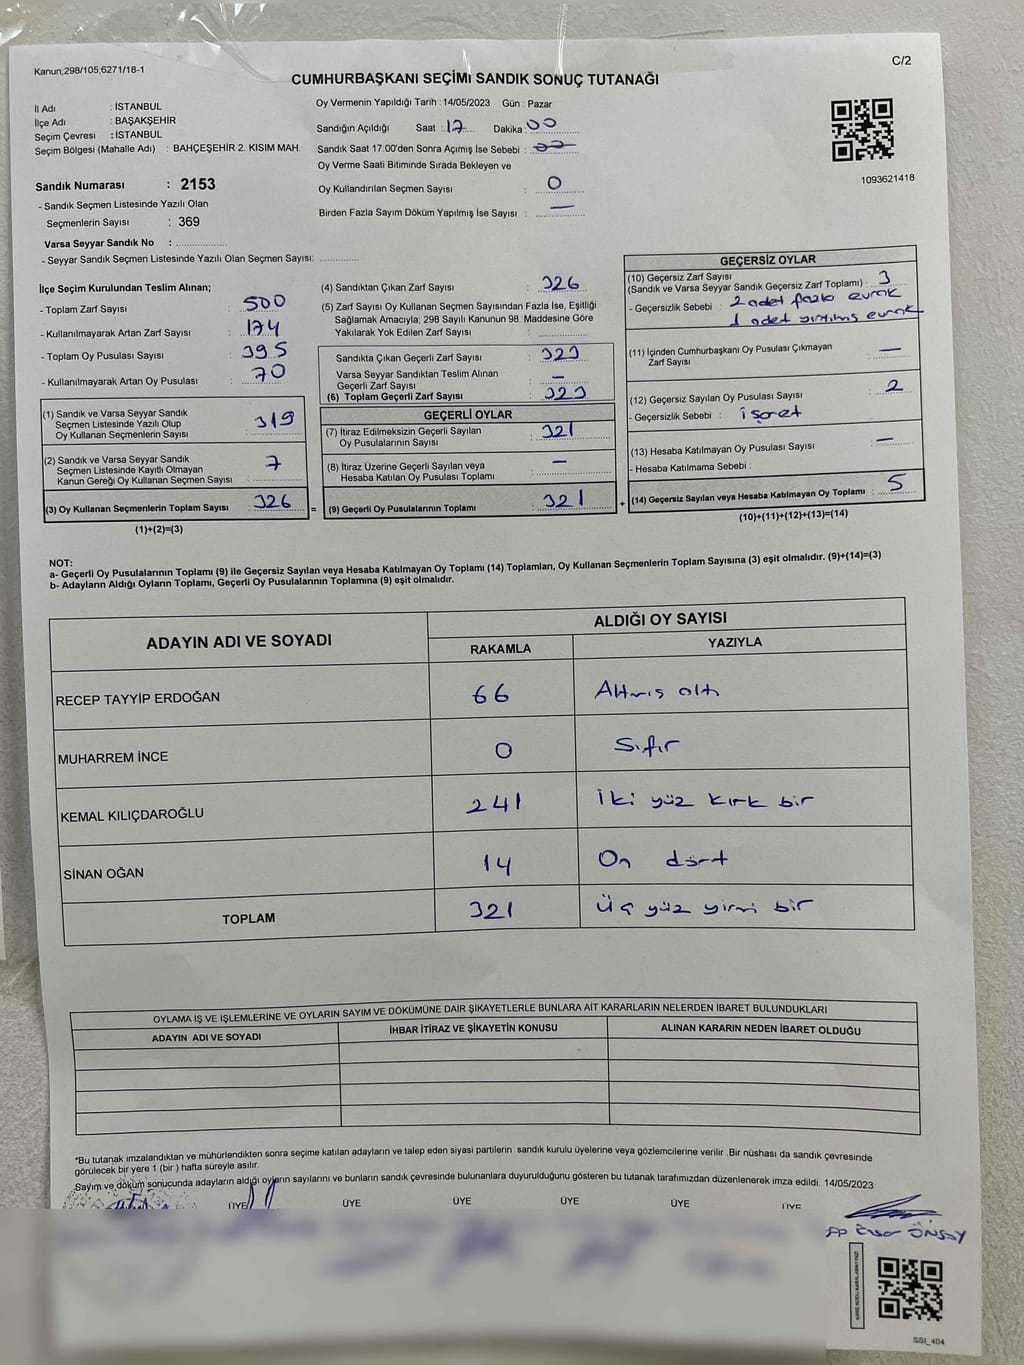 Kanun;298/105,6271/18-1
C/2
CUMHURBAŞKANI SEÇİMİ SANDIK SONUÇ TUTANAĞI
İl Adı : İSTANBUL
İlçe Adı : BAŞAKŞEHİR
Seçim Çevresi : İSTANBUL
Seçim Bölgesi (Mahalle Adı) : BAHÇEŞEHİR 2. KISIM MAH.
Sandık Numarası : 2153
- Sandık Seçmen Listesinde Yazılı Olan
Seçmenlerin Sayısı : 369
Varsa Seyyar Sandık No :
- Seyyar Sandık Seçmen Listesinde Yazılı Olan Seçmen Sayısı:
Oy Vermenin Yapıldığı Tarih : 14/05/2023 Gün : Pazar
Sandığın Açıldığı Saat : 17 Dakika : 00
Sandık Saat 17:00'den Sonra Açımış İse Sebebi :
Oy Verme Saati Bitiminde Sırada Bekleyen ve
Oy Kullandırılan Seçmen Sayısı : 0
Birden Fazla Sayım Döküm Yapılmış İse Sayısı : —
1093621418
İlçe Seçim Kurulundan Teslim Alınan;
- Toplam Zarf Sayısı : 500
- Kullanılmayarak Artan Zarf Sayısı : 174
- Toplam Oy Pusulası Sayısı : 395
- Kullanılmayarak Artan Oy Pusulası : 70
(1) Sandık ve Varsa Seyyar Sandık
Seçmen Listesinde Yazılı Olup
Oy Kullanan Seçmenlerin Sayısı : 319
(2) Sandık ve Varsa Seyyar Sandık
Seçmen Listesinde Kayıtlı Olmayan
Kanun Gereği Oy Kullanan Seçmen Sayısı : 7
(3) Oy Kullanan Seçmenlerin Toplam Sayısı : 326
(1)+(2)=(3)
(4) Sandıktan Çıkan Zarf Sayısı : 326
(5) Zarf Sayısı Oy Kullanan Seçmen Sayısından Fazla İse, Eşitliği
Sağlamak Amacıyla, 298 Sayılı Kanunun 98. Maddesine Göre
Yakılarak Yok Edilen Zarf Sayısı :
Sandıkta Çıkan Geçerli Zarf Sayısı : 323
Varsa Seyyar Sandıktan Teslim Alınan
Geçerli Zarf Sayısı : —
(6) Toplam Geçerli Zarf Sayısı : 323
GEÇERLİ OYLAR
(7) İtiraz Edilmeksizin Geçerli Sayılan
Oy Pusulalarının Sayısı : 321
(8) İtiraz Üzerine Geçerli Sayılan veya
Hesaba Katılan Oy Pusulası Toplamı : —
= (9) Geçerli Oy Pusulalarının Toplamı : 321 +
GEÇERSİZ OYLAR
(10) Geçersiz Zarf Sayısı
(Sandık ve Varsa Seyyar Sandık Geçersiz Zarf Toplamı) : 3
- Geçersizlik Sebebi : 2 adet fazla evrak
1 adet yırtılmış evrak
(11) İçinden Cumhurbaşkanı Oy Pusulası Çıkmayan
Zarf Sayısı : —
(12) Geçersiz Sayılan Oy Pusulası Sayısı : 2
- Geçersizlik Sebebi : işaret
(13) Hesaba Katılmayan Oy Pusulası Sayısı : —
- Hesaba Katılmama Sebebi :
(14) Geçersiz Sayılan veya Hesaba Katılmayan Oy Toplamı : 5
(10)+(11)+(12)+(13)=(14)
NOT:
a- Geçerli Oy Pusulalarının Toplamı (9) ile Geçersiz Sayılan veya Hesaba Katılmayan Oy Toplamı (14) Toplamları, Oy Kullanan Seçmenlerin Toplam Sayısına (3) eşit olmalıdır. (9)+(14)=(3)
b- Adayların Aldığı Oyların Toplamı, Geçerli Oy Pusulalarının Toplamına (9) eşit olmalıdır.
ADAYIN ADI VE SOYADI
ALDIĞI OY SAYISI
RAKAMLA YAZIYLA
RECEP TAYYİP ERDOĞAN 66 Altmış altı
MUHARREM İNCE 0 Sıfır
KEMAL KILIÇDAROĞLU 241 İki yüz kırk bir
SİNAN OĞAN 14 On dört
TOPLAM 321 Üç yüz yirmi bir
OYLAMA İŞ VE İŞLEMLERİNE VE OYLARIN SAYIM VE DÖKÜMÜNE DAİR ŞİKAYETLERLE BUNLARA AİT KARARLARIN NELERDEN İBARET BULUNDUKLARI
ADAYIN ADI VE SOYADI İHBAR İTİRAZ VE ŞİKAYETİN KONUSU ALINAN KARARIN NEDEN İBARET OLDUĞU
*Bu tutanak imzalandıktan ve mühürlendikten sonra seçime katılan adayların ve talep eden siyasi partilerin sandık kurulu üyelerine veya gözlemcilerine verilir .Bir nüshası da sandık çevresinde
görülecek bir yere 1 (bir ) hafta süreyle asılır.
Sayım ve döküm sonucunda adayların aldığı oyların sayılarını ve bunların sandık çevresinde bulunanlara duyurulduğunu gösteren bu tutanak tarafımızdan düzenlenerek imza edildi. 14/05/2023
ÜYE ÜYE ÜYE ÜYE ÜYE ÜYE
ÖNSOY
SSI_404